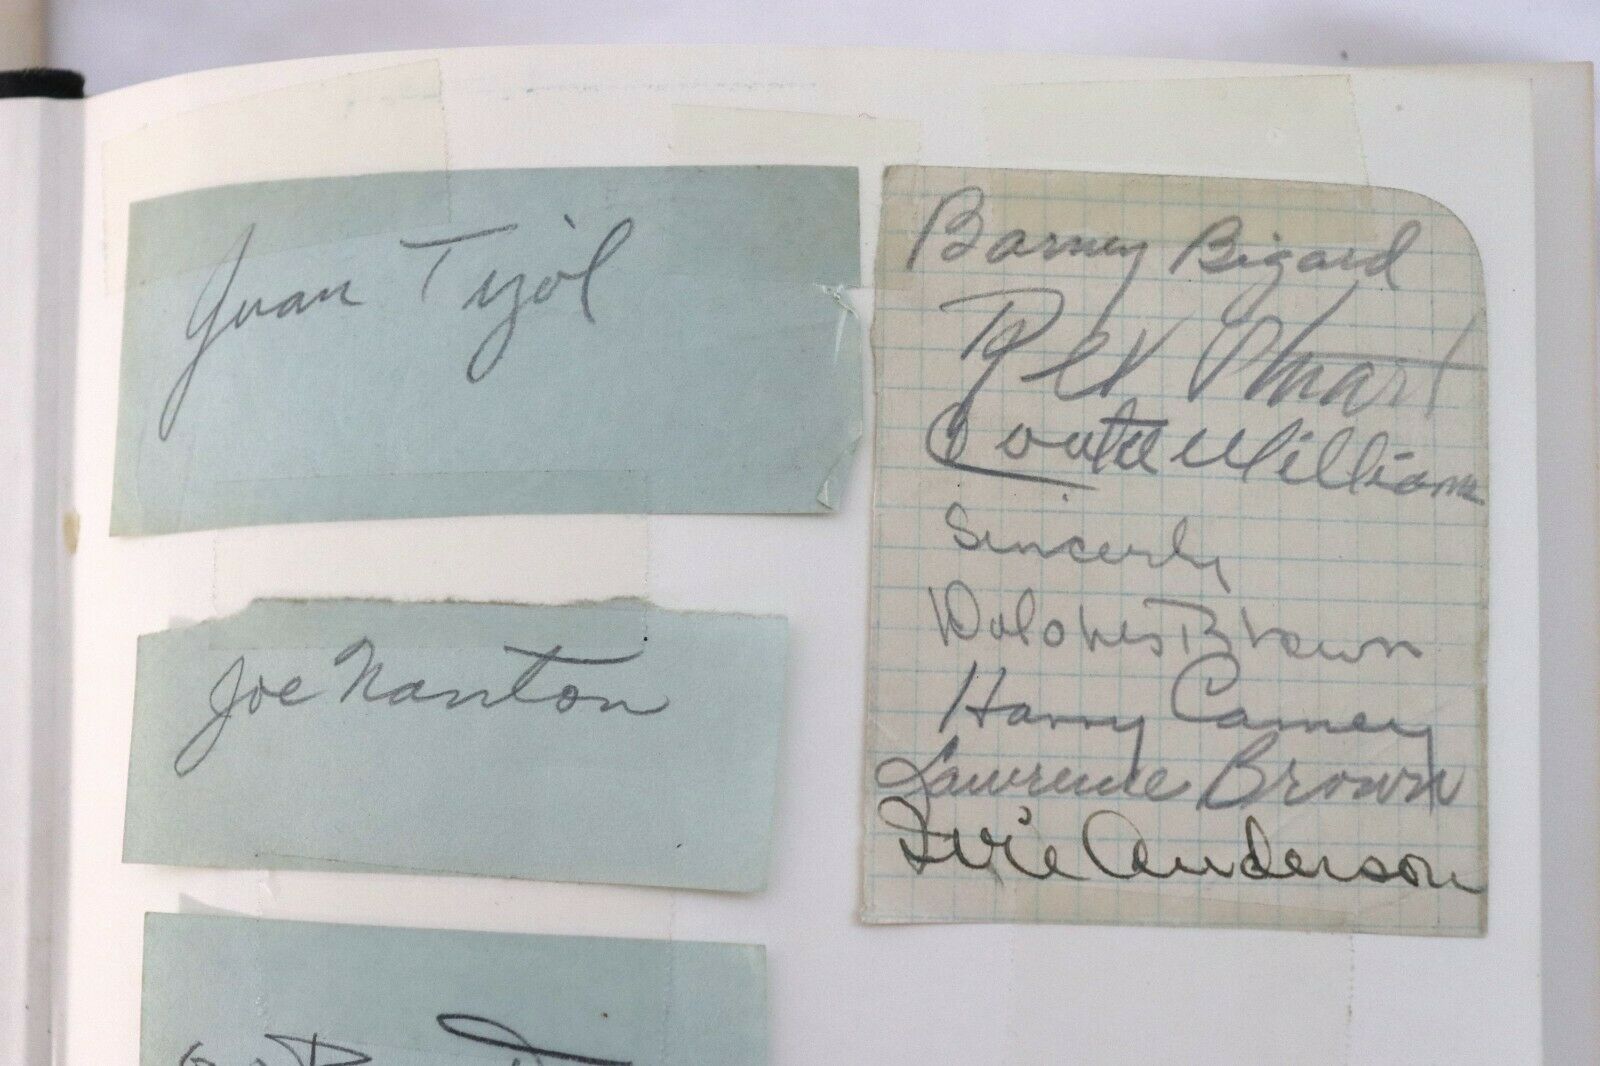 Juan Tizol
Joe Nanton
Barney Bigard
Rex Stewart
Cootie Williams
Sincerly
Dolores Brown
Harry Carney
Lawrence Brown
Ivie Anderson